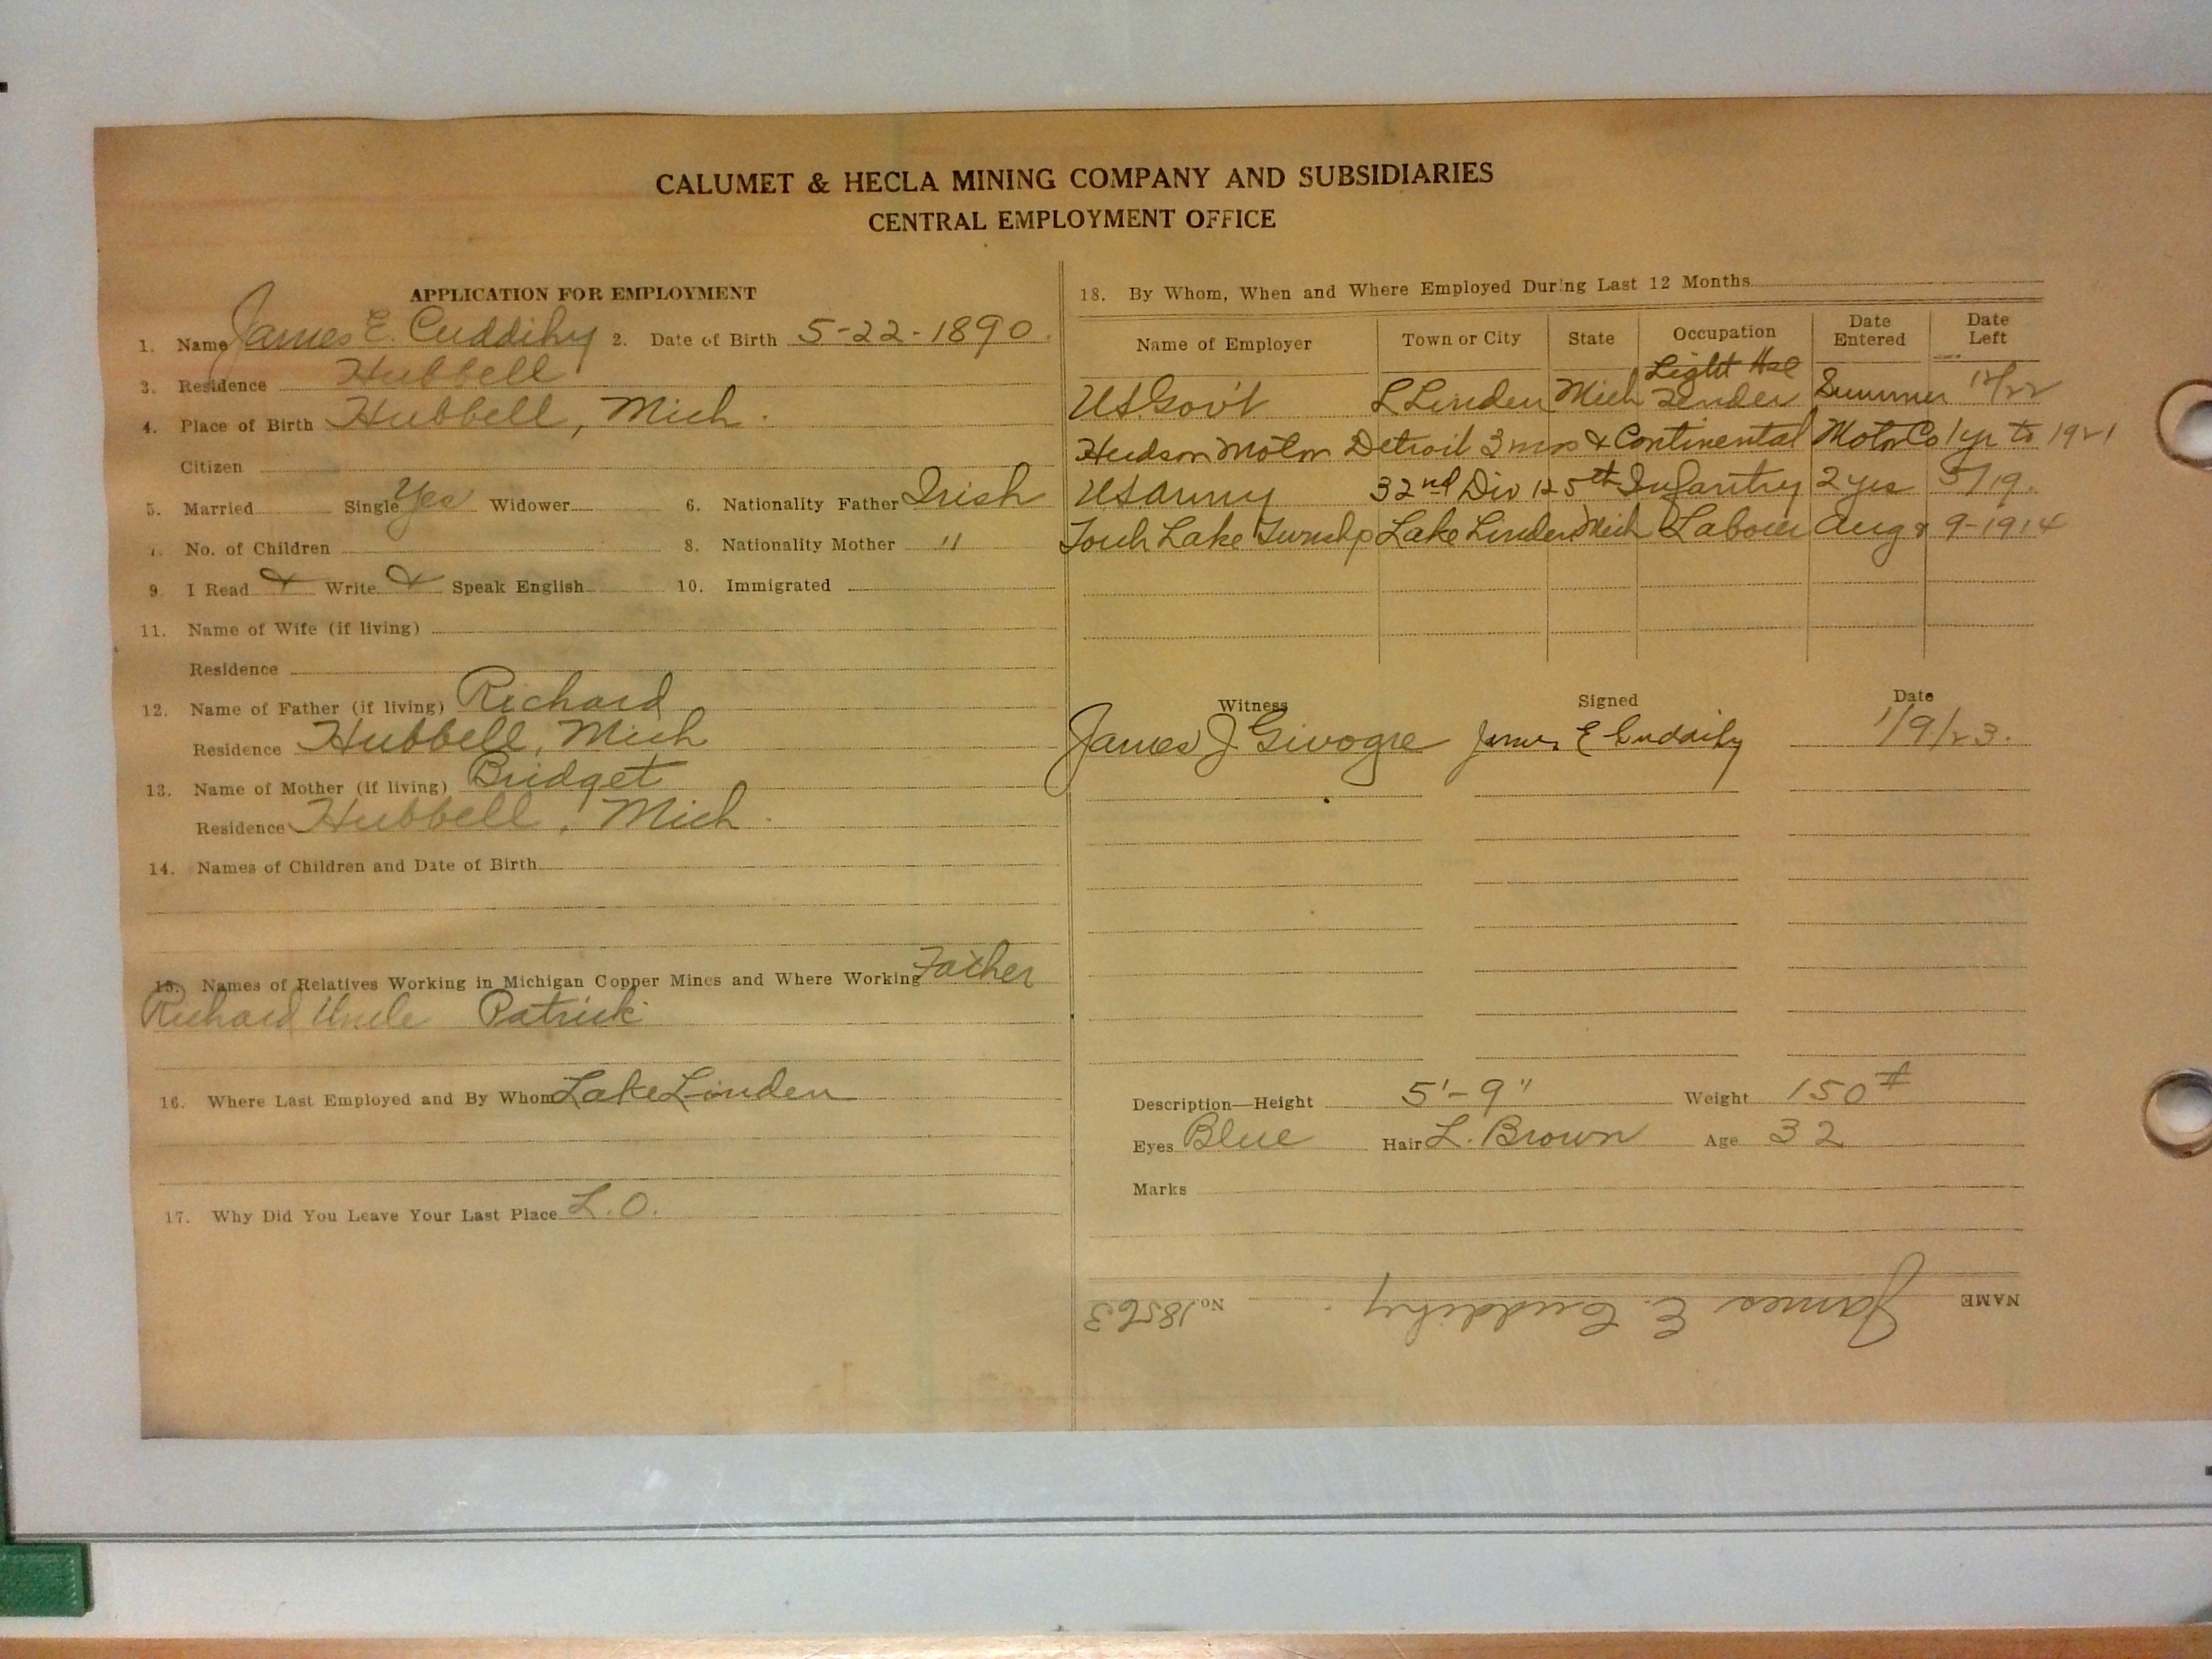 CALUMET & HECLA MINING COMPANY AND SUBSIDIARIES
CENTRAL EMPLOYMENT OFFICE
APPLICATION FOR EMPLOYMENT
1. Name James E. Cuddihy 2. Date of Birth 5-22-1890.
3. Residence Hubbell
4. Place of Birth Hubbell, Mich.
Citizen
5. Married Single Yes Widower 6. Nationality Father Irish
7. No. of Children 8. Nationality Mother "
9. I Read & Write & Speak English 10. Immigrated
11. Name of Wife (if living)
Residence
12. Name of Father (if living) Richard
Residence Hubbell, Mich
13. Name of Mother (if living) Bridget
Residence Hubbell, Mich.
14. Names of Children and Date of Birth
15. Names of Relatives Working in Michigan Copper Mines and Where Working Father
Richard Uncle Patrick
16. Where Last Employed and By Whom Lake Linden
17. Why Did You Leave Your Last Place L.O.
18. By Whom, When and Where Employed During Last 12 Months
Name of Employer Town or City State Occupation Date Entered Date Left
US Gov't L Linden Mich Light Hse Tender Summer 12/22
Hudson Motor Detroit 3 mos & Continental Motor Co 1 yr to 1921
US Army 32nd Div 125th Infantry 2 yrs 5/19.
Torch Lake Township Lake Linden Mich Labour Aug & 9-1914
Witness Signed Date
James J Givogre James E Cuddihy 1/9/23.
Description—Height 5'-9" Weight 150#
Eyes Blue Hair L. Brown Age 32
Marks
NAME James E. Cuddihy. No. 18563